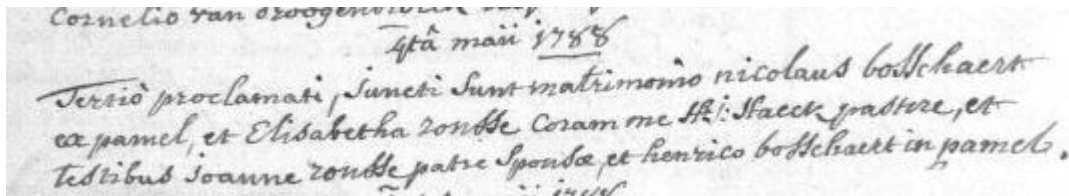 Cornelio van
4tâ maii 1788
Tertiò proclamati, juncti sunt matrimonio nicolaus bosschaert
ex pamel, et Elisabetha rousse coram me Staeck pastore, et
testibus joanne rousse patre sponsæ, et henrico bosschaert in pamel.
maii 1788